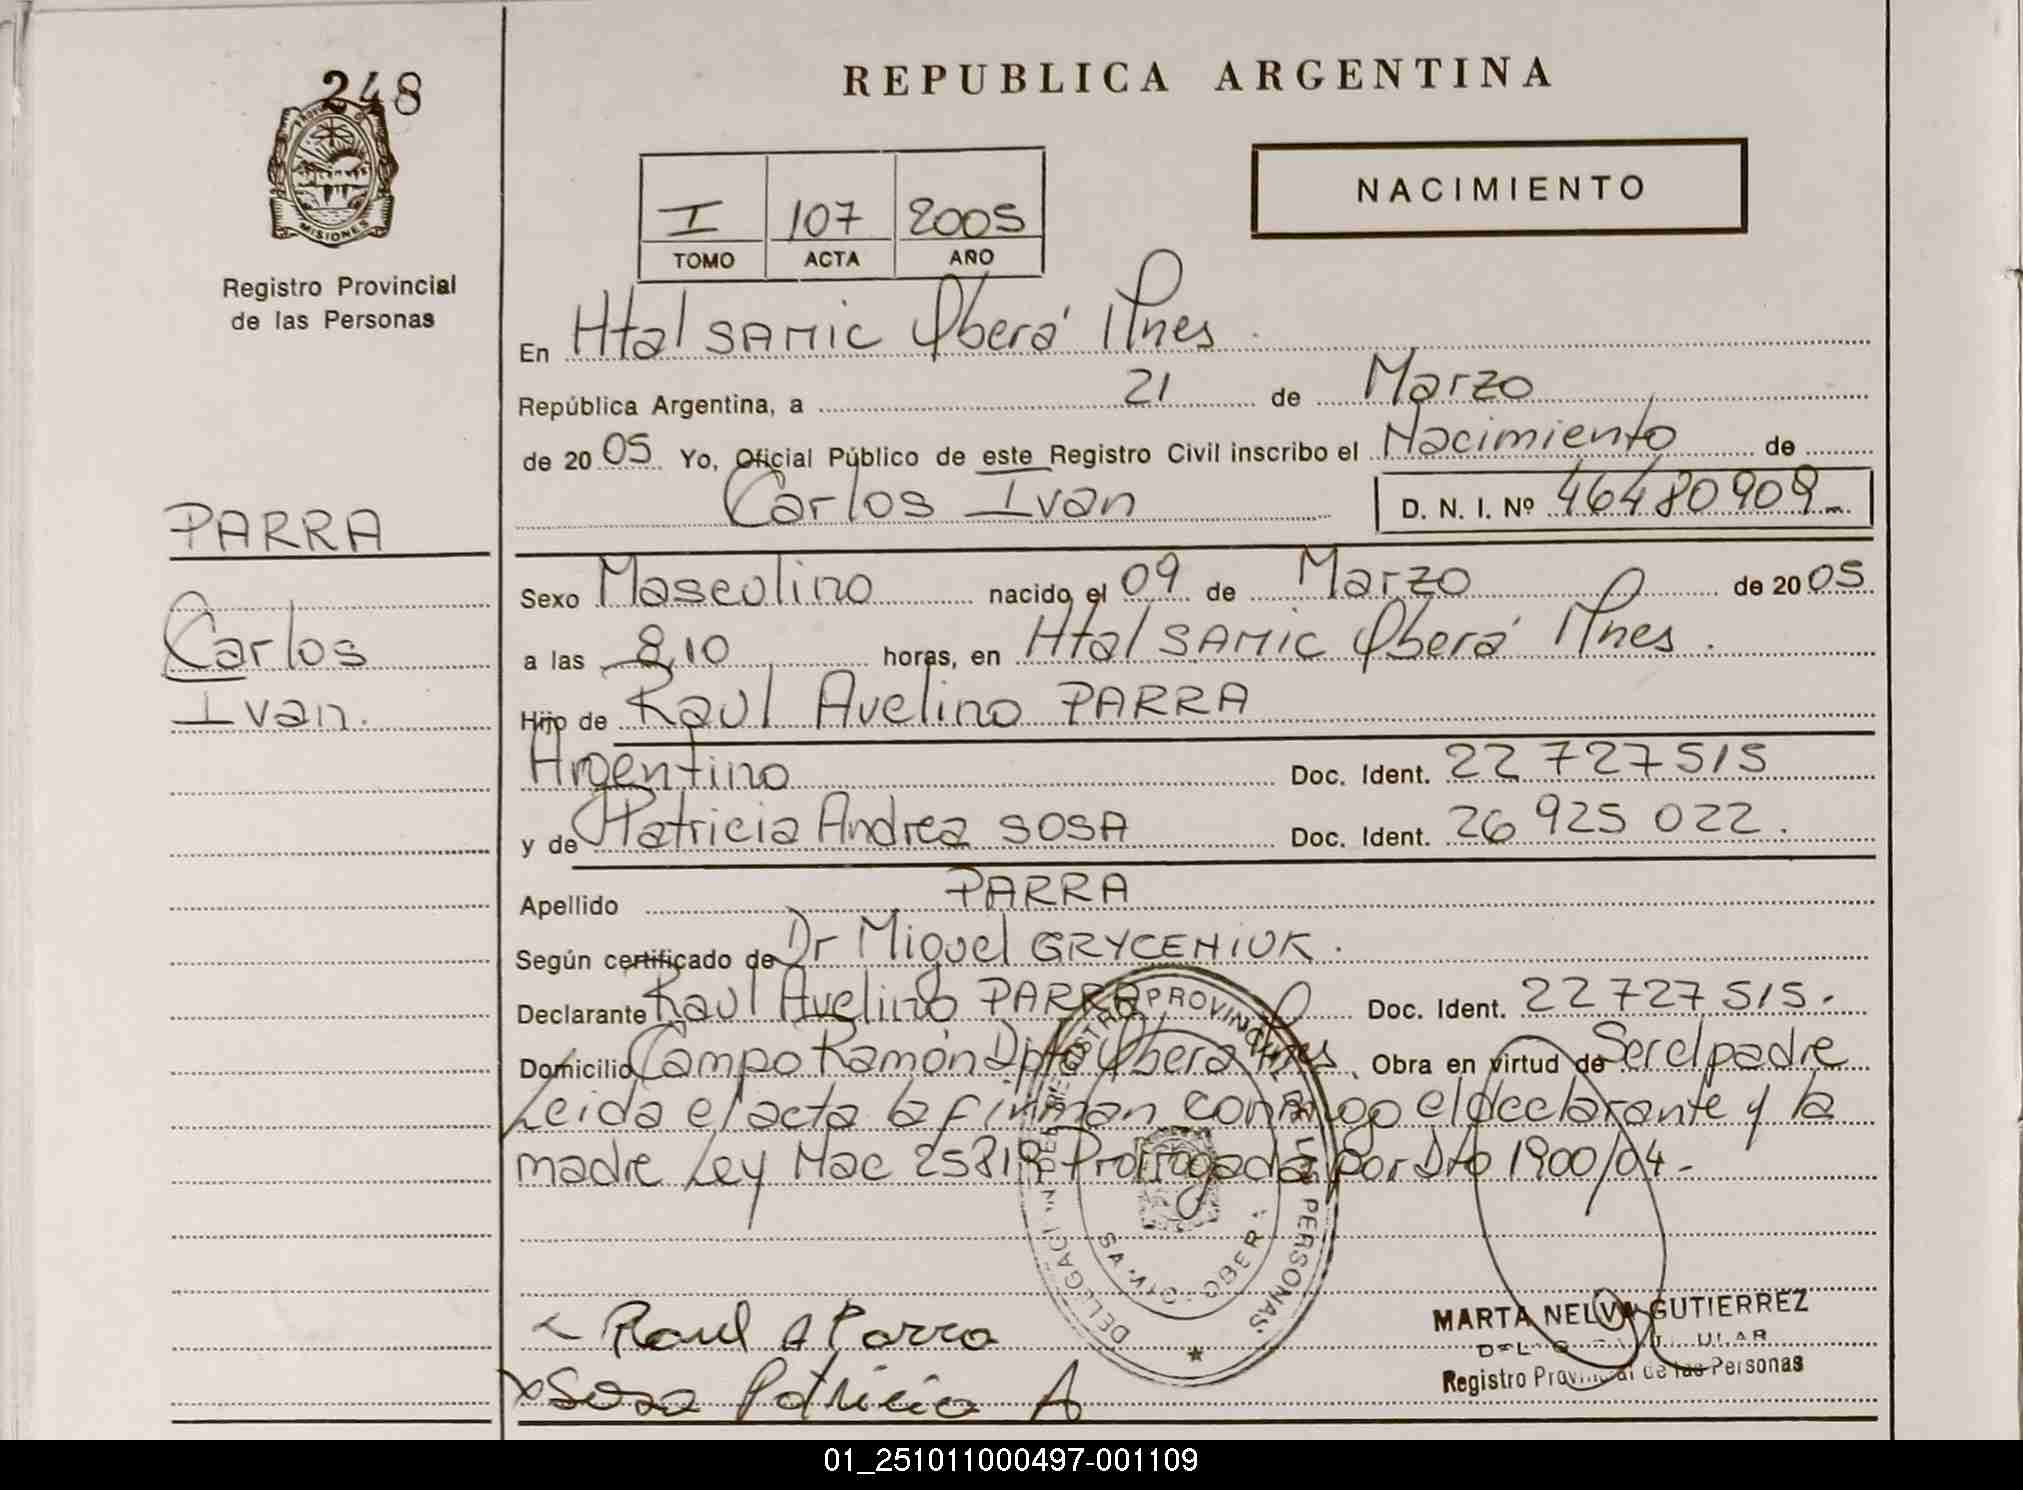 248
REPUBLICA ARGENTINA
NACIMIENTO
MISIONES
Registro Provincial
de las Personas
I 107 2005
TOMO ACTA AÑO
En Htal SAMIC Oberá Mnes.
República Argentina, a 21 de Marzo
de 2005 Yo, Oficial Público de este Registro Civil inscribo el Nacimiento de
Carlos Ivan D. N. I. Nº 46480909
PARRA
Carlos
Ivan.
Sexo Masculino nacido el 09 de Marzo de 2005
a las 8,10 horas, en Htal SAMIC Oberá Mnes.
Hijo de Raul Avelino PARRA
Argentino Doc. Ident. 22 727 515
y de Patricia Andrea SOSA Doc. Ident. 26 925 022.
Apellido PARRA
Según certificado de Dr Miguel GRYCENIUK.
Declarante Raul Avelino PARRA Doc. Ident. 22 727 515.
Domicilio Campo Ramón Dpto Oberá Mnes, Obra en virtud de Ser el padre
Leida el acta la firman conmigo el declarante y la
madre Ley Nac 25819 Prorrogada por Dto 1900/04.-
PROVINCIAL DE LAS PERSONAS
OBERA
Raul A Parra
Sosa Patricia A
MARTA NELVA GUTIERREZ
Registro Provincial de las Personas
01_251011000497-001109